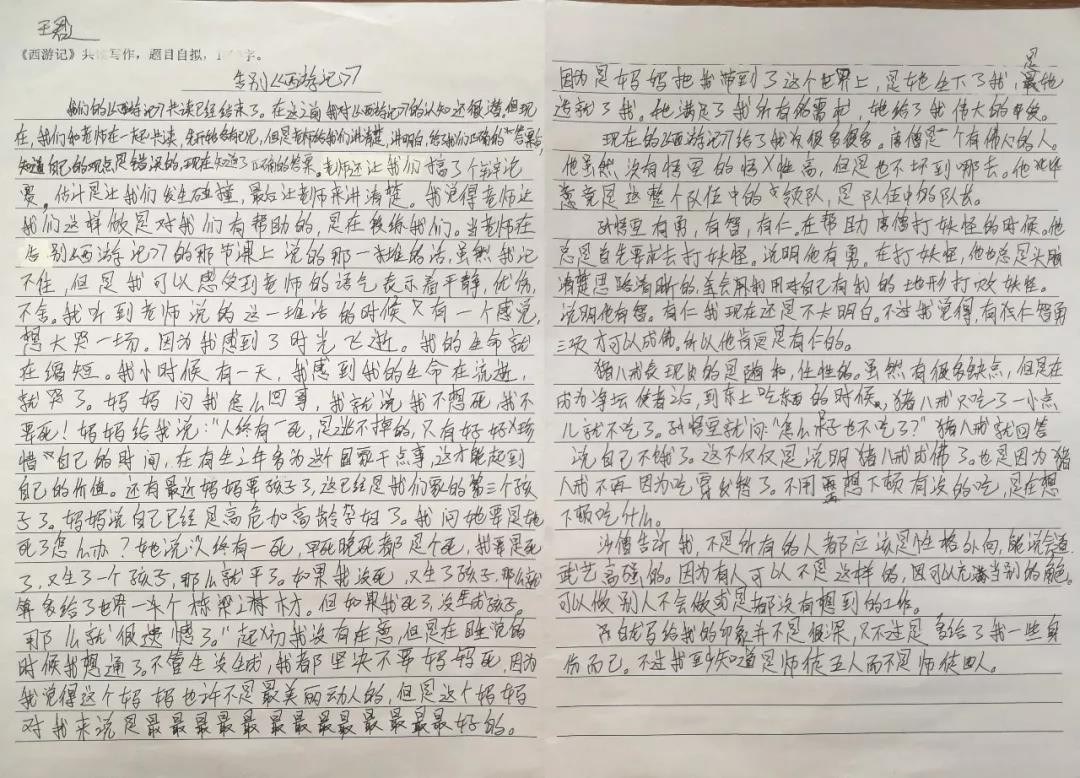 王
《西游记》共读写作，题目自拟，字。
告别《西游记》
我们的《西游记》共读已经结束了。在这之前我对《西游记》的认知还很潜。但现
在，我们和老师在一起共读，先开始自己说，但是老师给我们讲清楚，讲明白，给我们正确的答案后，
知道自己的观点是错误的，现在知道了正确的答案。老师还让我们搞了个辩论
赛。估计是让我们发生碰撞，最后让老师来讲清楚。我觉得老师让
我们这样做是对我们有帮助的，是在锻练我们。当老师在
告别《西游记》的那节课上说的那一大堆的话，虽然我记
不住，但是我可以感受到老师的语气表示着平静，忧伤，
不舍。我听到老师说的这一堆话的时候又有一个感觉，
想大哭一场。因为我感到了时光飞逝。我的生命就
在缩短。我小时候有一天，我感到我的生命在流逝，
就哭了。妈妈问我怎么回事，我就说我不想死，我不
要死！妈妈给我说：“人终有一死，是逃不掉的，只有好好珍
惜自己的时间，在有生之年多为这个国家干点事，这才能起到
自己的价值。还有最近妈妈要孩子了，这已经是我们家的第三个孩
子了。妈妈说自己已经是高危加高龄孕妇了。我问她要是她
死了怎么办？她说：“人终有一死，早死晚死都是个死，我要是死
了，又生了一个孩子，那么就平了。如果我没死，又生了孩子，那么就
算多给了世界一个栋梁之材。但如果我死了，没生成孩子。
那么就很遗憾了。”起初我没有在意，但是在
时候我想通了。不管生没生成，我都坚决不要妈妈死，因为
我觉得这个妈妈也许不是最美丽动人的，但是这个妈妈
对我来说是最最最最最最最最最最最好的。
因为是妈妈把我带到了这个世界上，是她生下了我，是她
造就了我。她满足了我所有的需求，她给了我伟大的母爱。
现在的《西游记》给了我很多很多。唐僧是一个有佛心的人。
他虽然没有悟空的悟性高，但是也不坏到哪去。他毕
竟是这整个队伍中的领队，是队伍中的队长。
孙悟空有勇，有智，有仁。在帮助唐僧打妖怪的时候。他
总是首先要求去打妖怪。说明他有勇。在打妖怪，他也总是头脑
清楚思路清晰的，会利用对自己有利的地形打败妖怪。
说明他有智。有仁我现在还是不大明白。不过我觉得，有仁智勇
三项才可以成佛。所以他肯定是有仁的。
猪八戒表现出的是随和，任性的。虽然有很多缺点，但是在
成为净坛使者之后，到东土吃东西的时候，猪八戒只吃了一小点
儿就不吃了。孙悟空就问“怎么呆子也不吃了？”猪八戒就回答
说自己不饿了。这不仅仅是说明猪八戒成佛了。也是因为猪
八戒不再因为吃发愁了。不用再想下顿有没的吃，是在想
下顿吃什么。
沙僧告诉我，不是所有的人都应该是性格外向，能说会道
武艺高强的。因为有人可以不是这样的，因可以充当别的角色。
可以做别人不会做或是都没有想到的工作。
白龙马给我的印象并不是很深，只不过是多给了我一些身
伤而已。不过我至少知道是师徒五人而不是师徒四人。